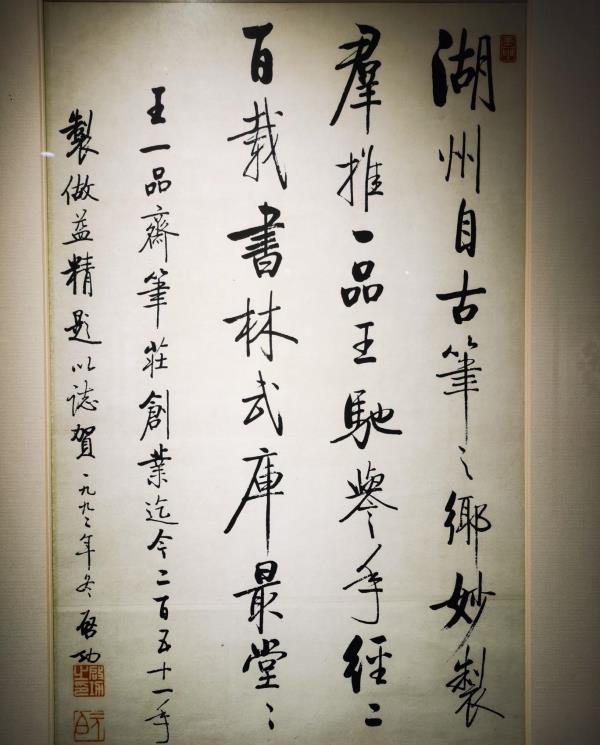 湖州自古筆之鄉妙製
羣推一品王馳譽年經二
百載書林武庫最堂〻
王一品齋筆莊創業迄今二百五十一年
製做益精題以誌賀一九九二年冬啓功
啓功之印
元白